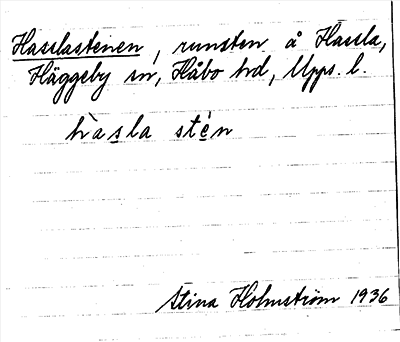 Hasslastenen, runsten å Hassla,
Häggeby sn, Håbo hd, Upps. l.
hàsla stén
Stina Holmström 1936